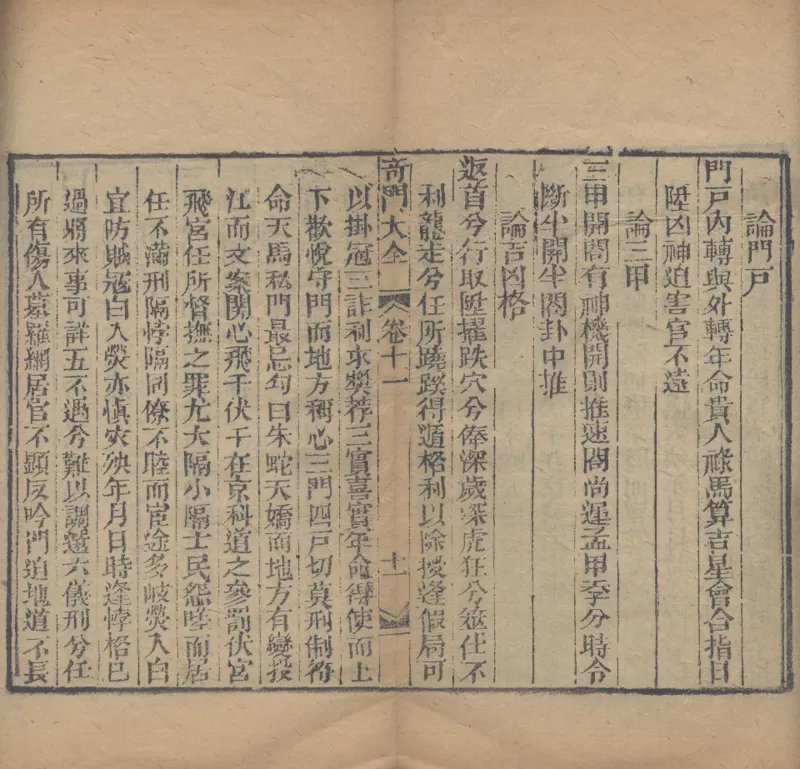 論門戶
門戶內轉與外轉年命貴人祿馬算吉星會合指日
陞凶神迫害官不遠
論三甲
三甲開闔有神機開則推速闔尚遲孟甲季分時令
斷半開半闔卦中推
論吉凶格
返首兮行取陞擢跌穴兮俸深歲深虎狂兮筮仕不
利龍走兮任所蹺蹊得遁格利以除授逢假局可
奇門大全 卷十一 十一
以掛冠三詐利來獎荐三實喜實年命得使而上
下歡悅守門而地方稱心三門四戶切莫刑制
命天馬私門最忌勾曰朱蛇天嬌而地方有變投
江而文案関心飛干伏干在京科道之參罰伏宮
飛宮任所督撫之罪尤大隔小隔士民怨而居
任不滿刑隔悖隔同僚不睦而宦途多岐熒入白
宜防賊寇白入熒亦慎灾殃年月日時逢悖格已
過將來事可詳五不遇兮難以調蹇六儀刑兮任
所有傷入墓羅網居官不顯反吟門迫地道不長